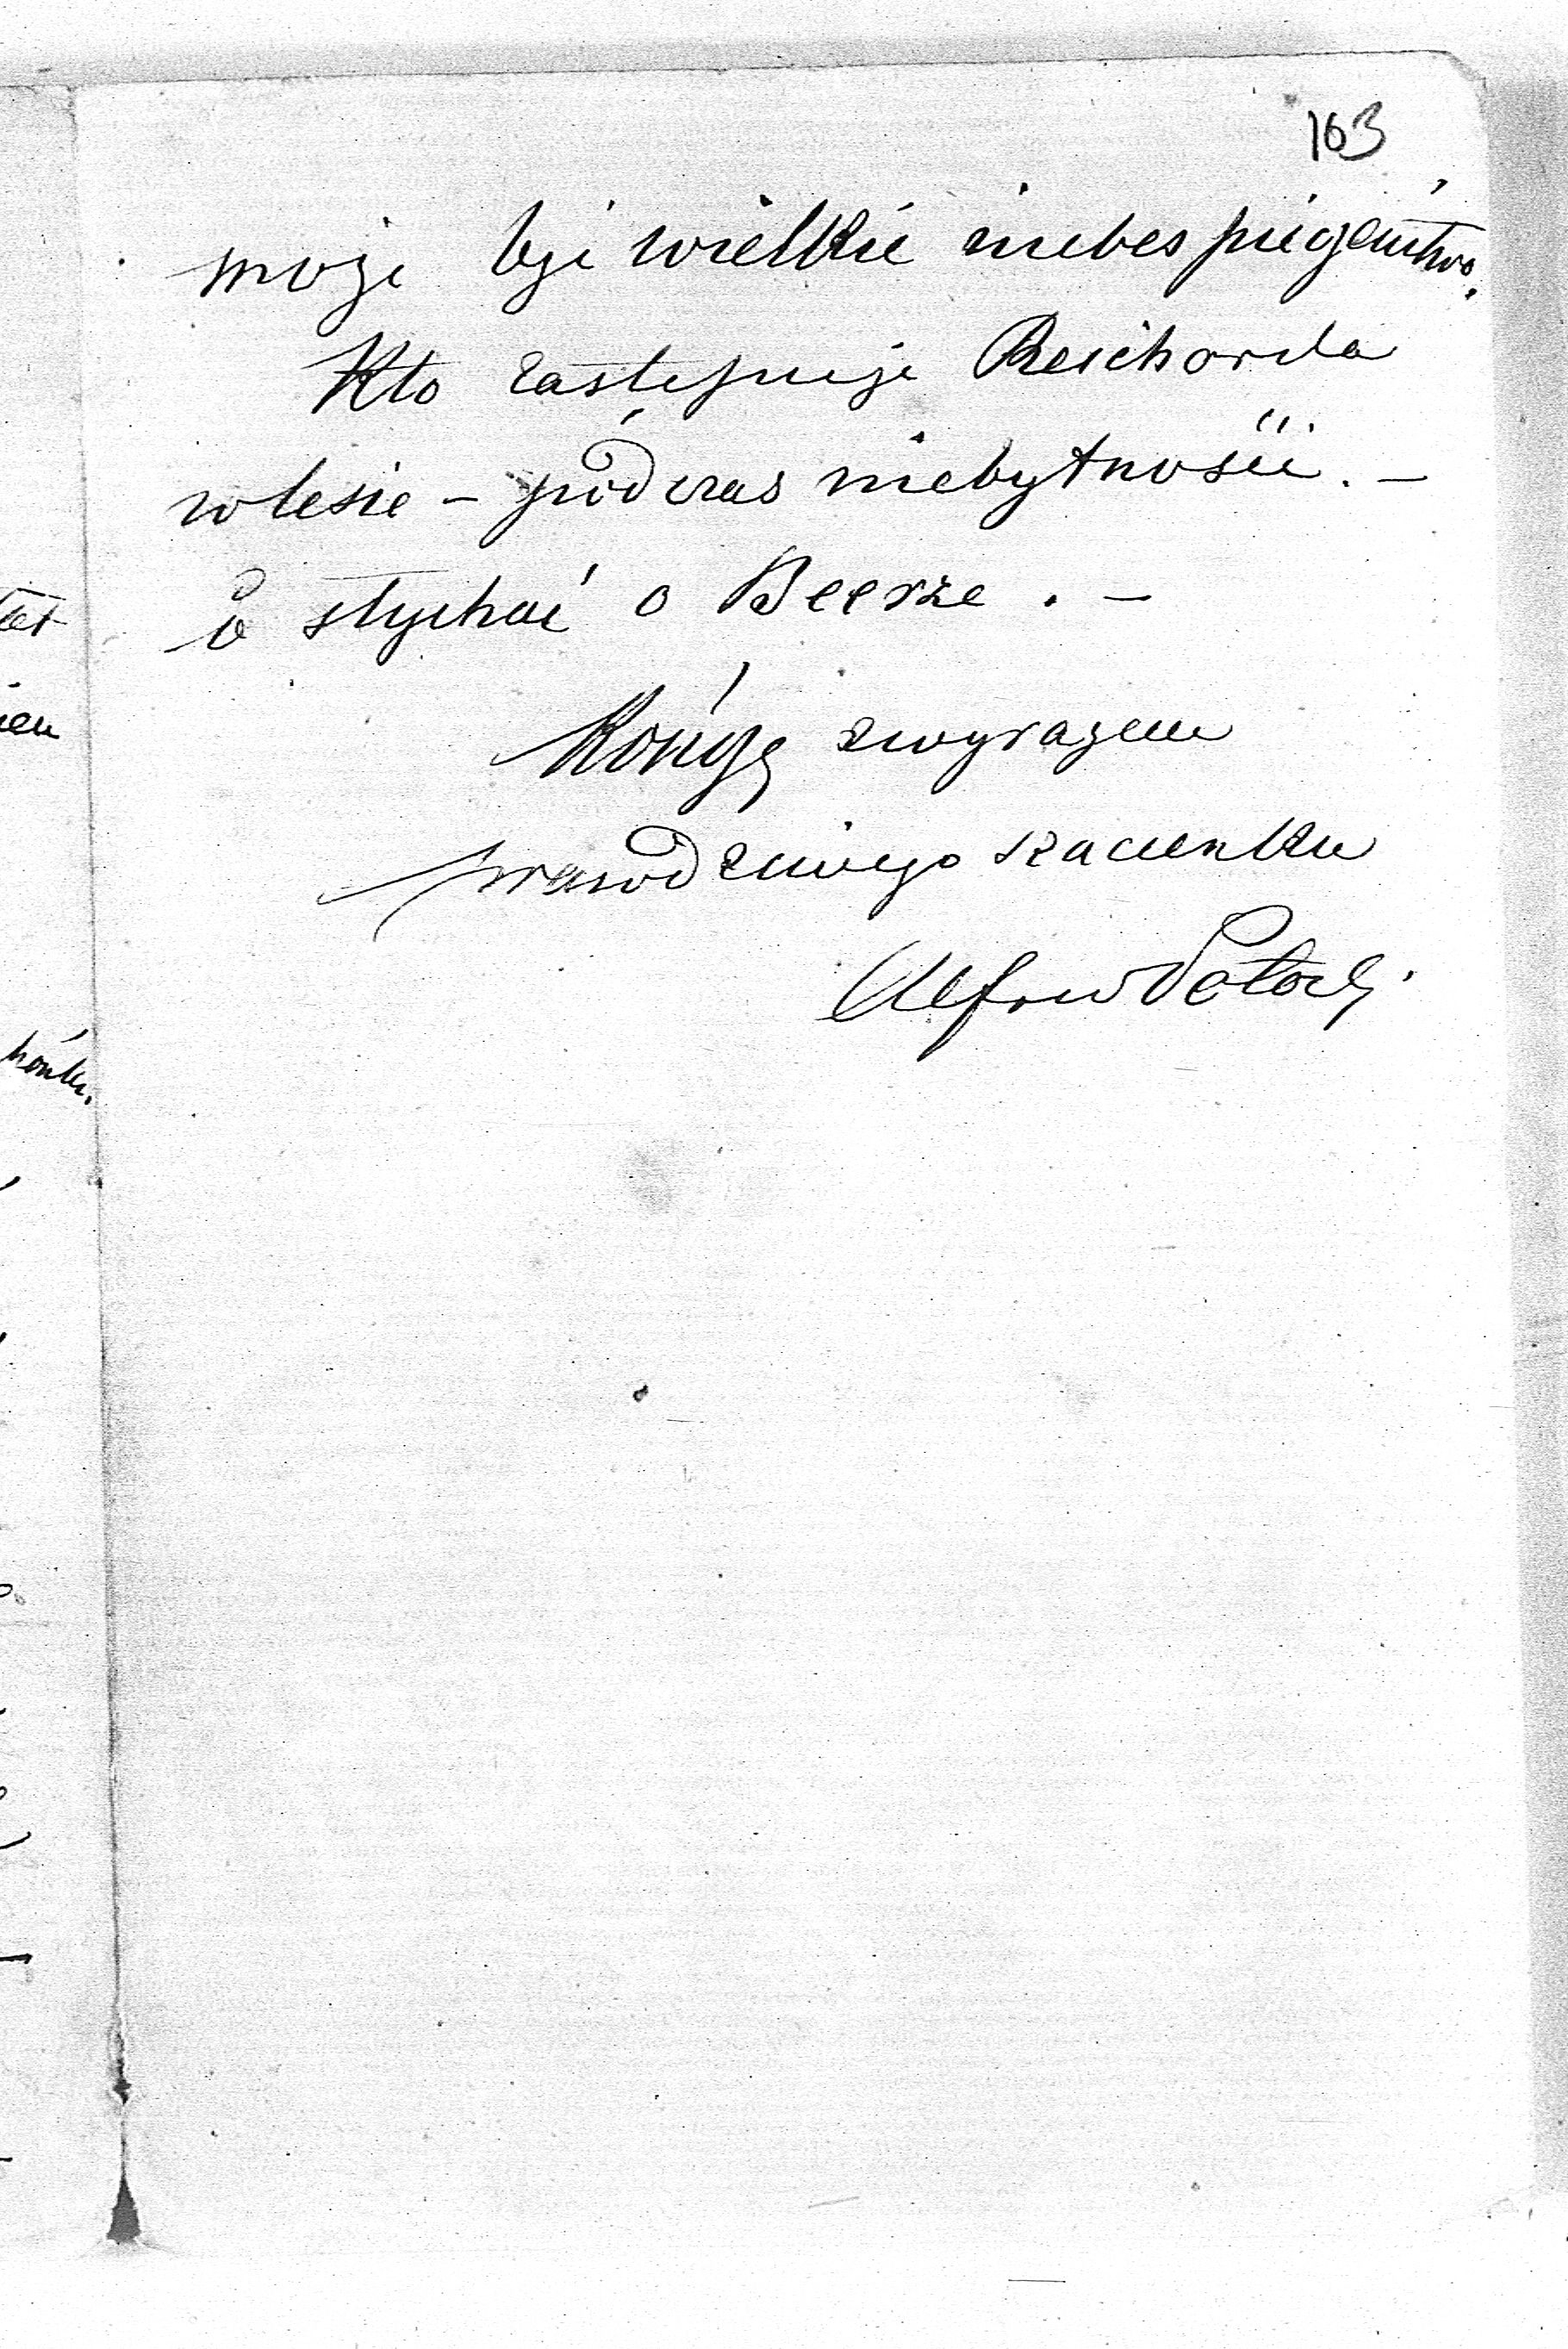 163
może być wielkie niebespiczeństwo.
Kto zastępuje Reicharda
w lesie – pódczas niebytności. –
Co słychać o Beerze. –
Kończę z wyrazem
prawdziwego szacunku
Alfred Potocki